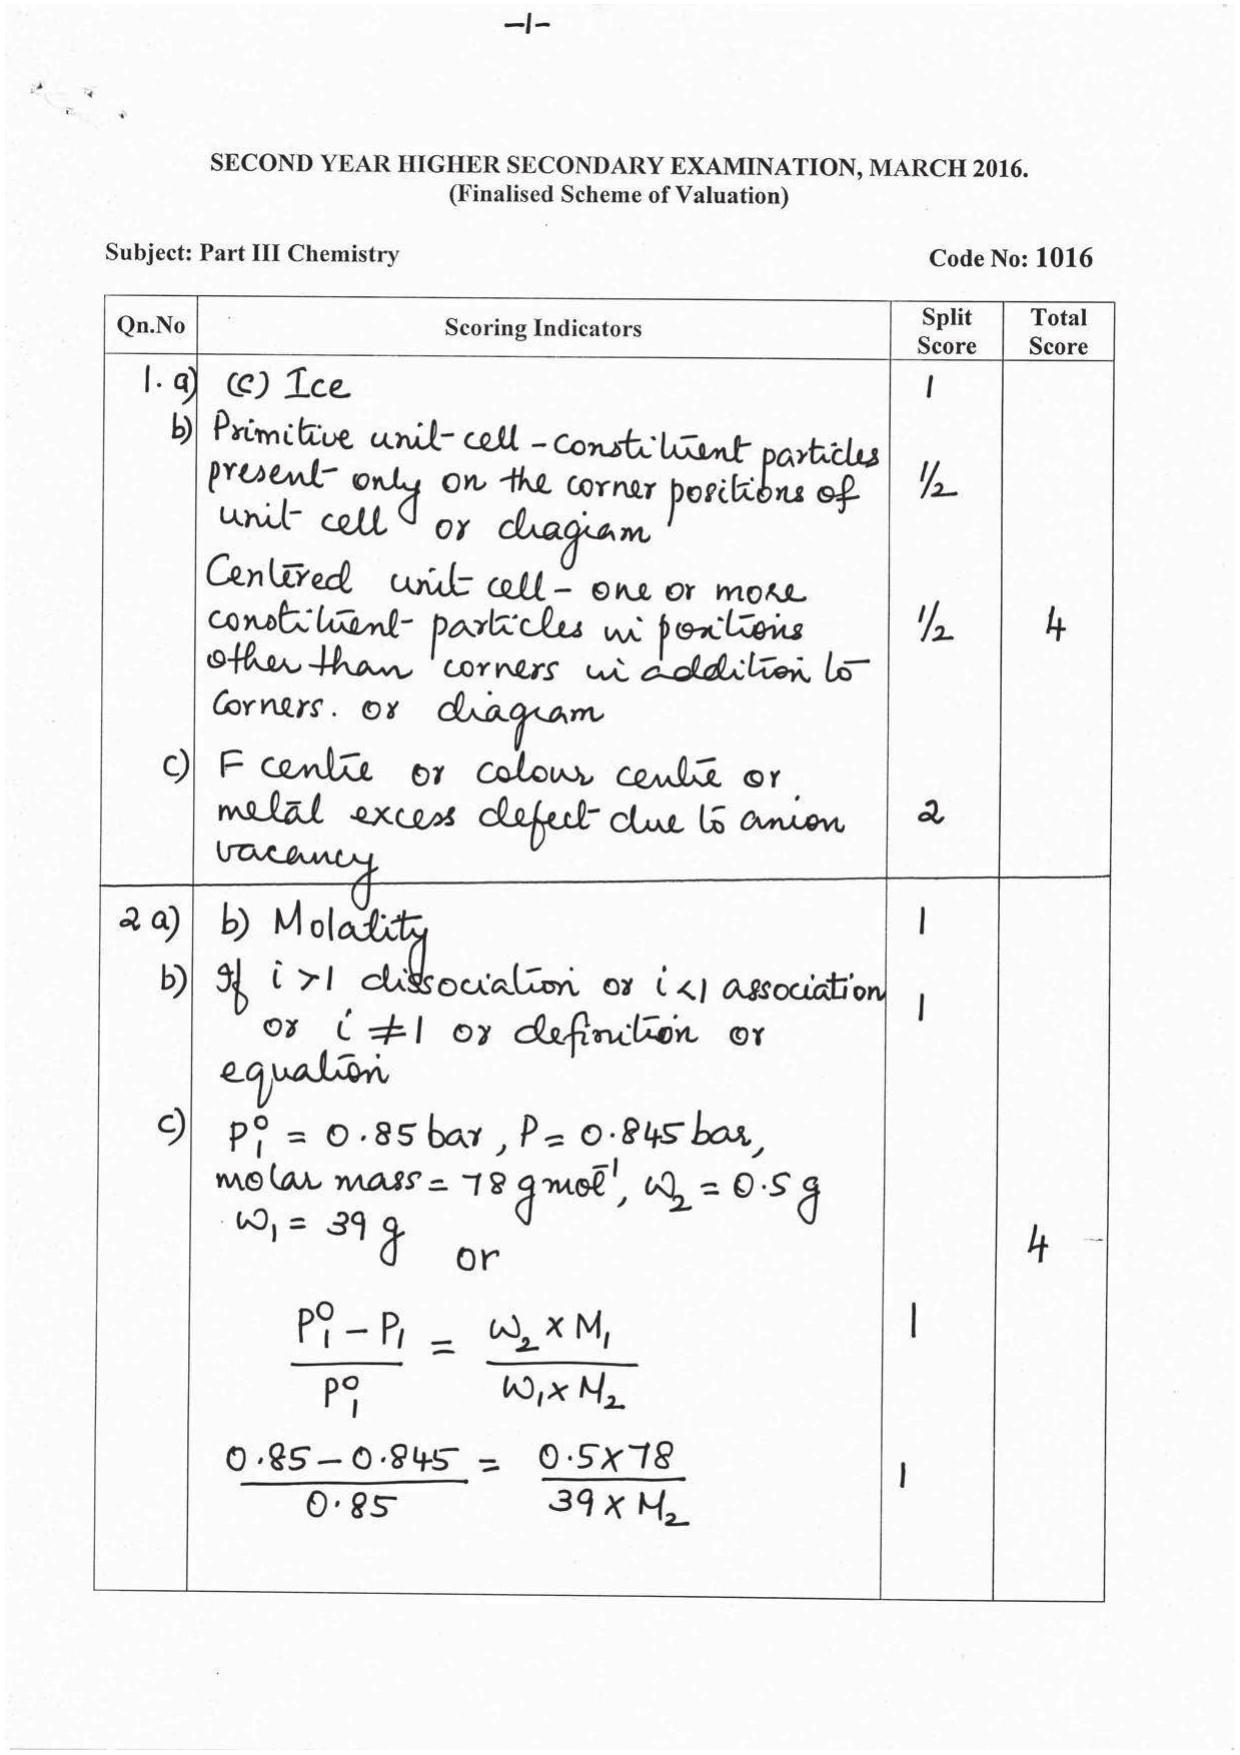 -1-
SECOND YEAR HIGHER SECONDARY EXAMINATION, MARCH 2016.
(Finalised Scheme of Valuation)
Subject: Part III Chemistry Code No: 1016
Qn.No Scoring Indicators Split Score Total Score
1. a) (c) Ice 1
b) Primitive unit cell - constituent particles
present only on the corner positions of 1/2
unit cell or diagram
Centered unit cell - one or more
constituent particles in positions 1/2 4
other than corners in addition to
corners. or diagram
c) F centre or colour centre or
metal excess defect due to anion 2
vacancy
2 a) b) Molality 1
b) If i >1 dissociation or i <1 association 1
or i ≠ 1 or definition or
equation
c) P₁⁰ = 0.85 bar, P = 0.845 bar,
molar mass = 78 g mol⁻¹, W₂ = 0.5 g
W₁ = 39 g or 4
(P₁⁰ - P₁) / P₁⁰ = (W₂ x M₁) / (W₁ x M₂) 1
(0.85 - 0.845) / 0.85 = (0.5 x 78) / (39 x M₂) 1